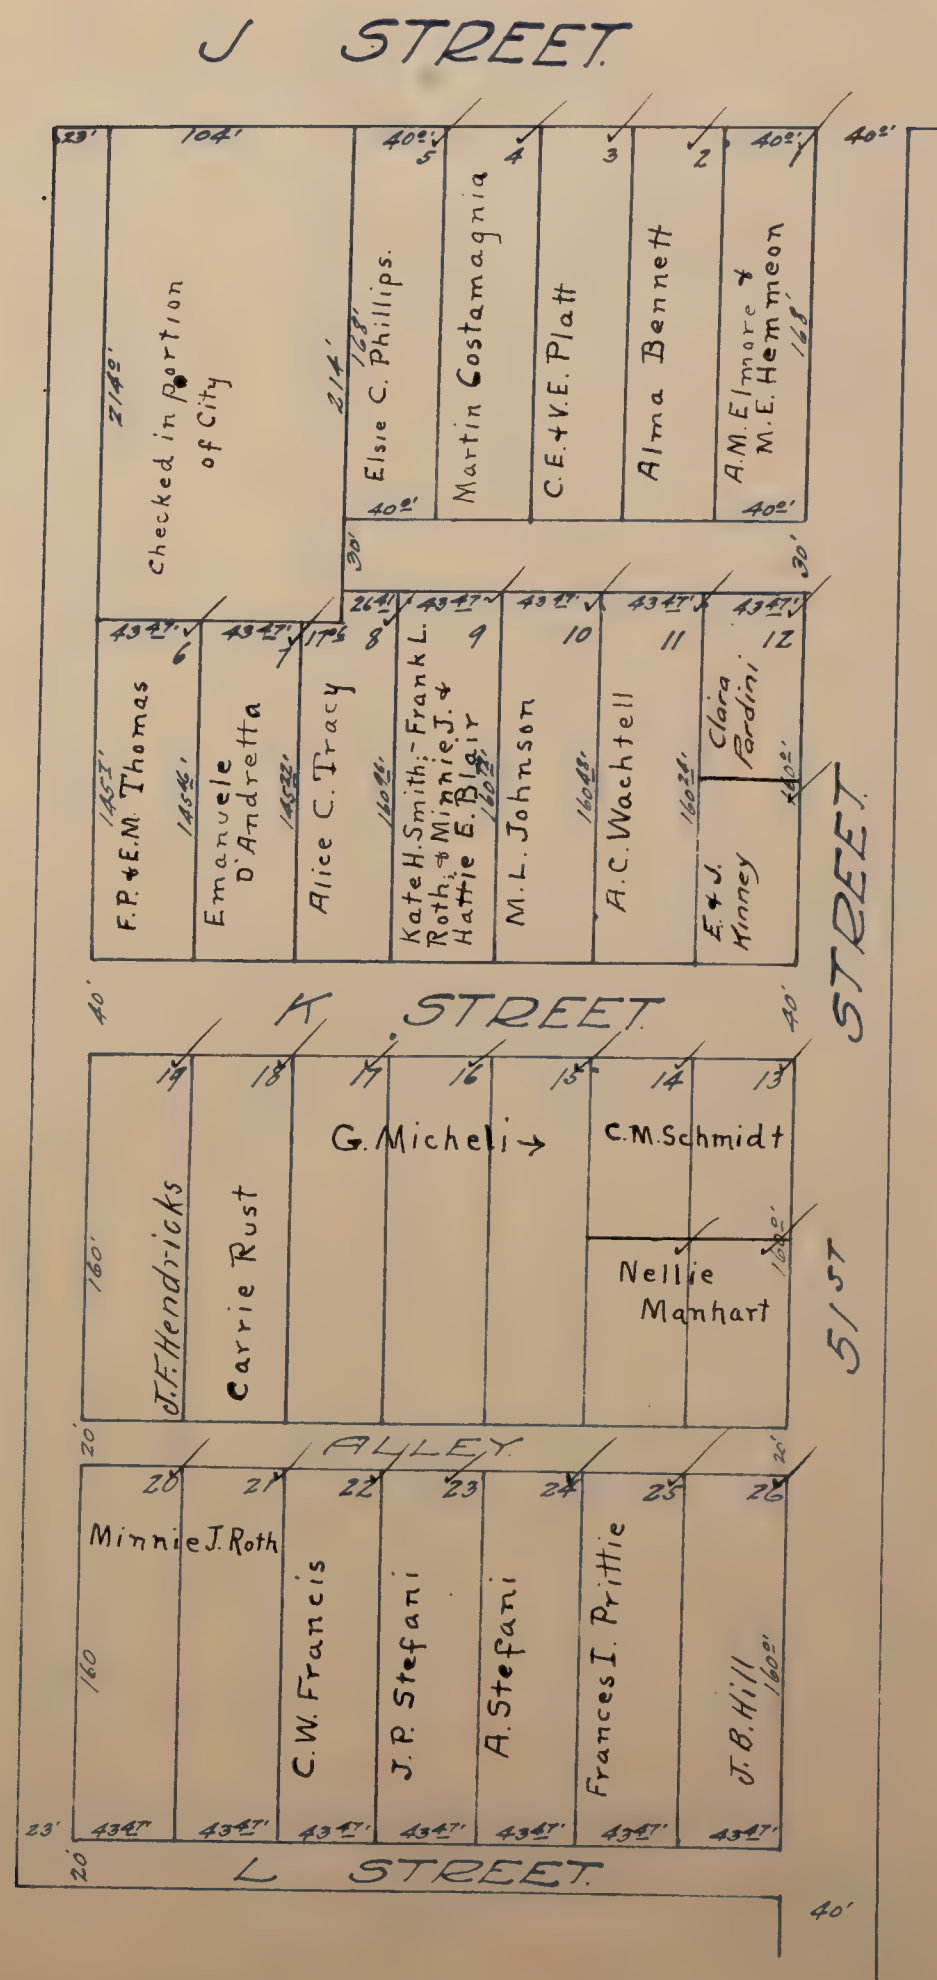 J STREET.
23'
104'
40º'
5
4
3
2
40º'
1
40º'
214º'
Checked in portion
of City
214'
168'
Elsie C. Phillips.
Martin Costamagnia
C.E. & V.E. Platt
Alma Bennett
A.M. Elmore &
M.E. Hemmeon
168'
40º'
40º'
30'
30'
43 47'
6
43 47'
7
17 06
26 41'
8
43 47'
9
43 47'
10
43 47'
11
43 47'
12
145 7'
F.P. & E.M. Thomas
145 46'
Emanuele
D'Andretta
145 22'
Alice C. Tracy
Kate H. Smith; Frank L.
Roth; & Minnie J. &
Hattie E. Blair
M.L. Johnson
160 48'
A.C. Wachtell
160 24'
Clara
Pardini
160º'
E. & J.
Kinney
40'
K STREET.
40'
51 ST STREET.
19
18
17
16
15
14
13
160'
J.F. Hendricks
Carrie Rust
G. Micheli →
C.M. Schmidt
160º'
Nellie
Manhart
20'
ALLEY.
20'
20
21
22
23
24
25
26
Minnie J. Roth
160
C.W. Francis
J.P. Stefani
A. Stefani
Frances I. Prittie
J.B. Hill
160º'
23'
43 47'
43 47'
43 47'
43 47'
43 47'
43 47'
43 47'
20'
L STREET.
40'